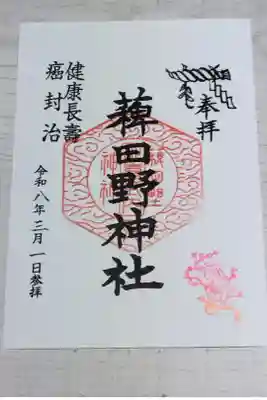 奉拝
薭田野神社
健康長壽
癌封治
令和八年三月一日参拝